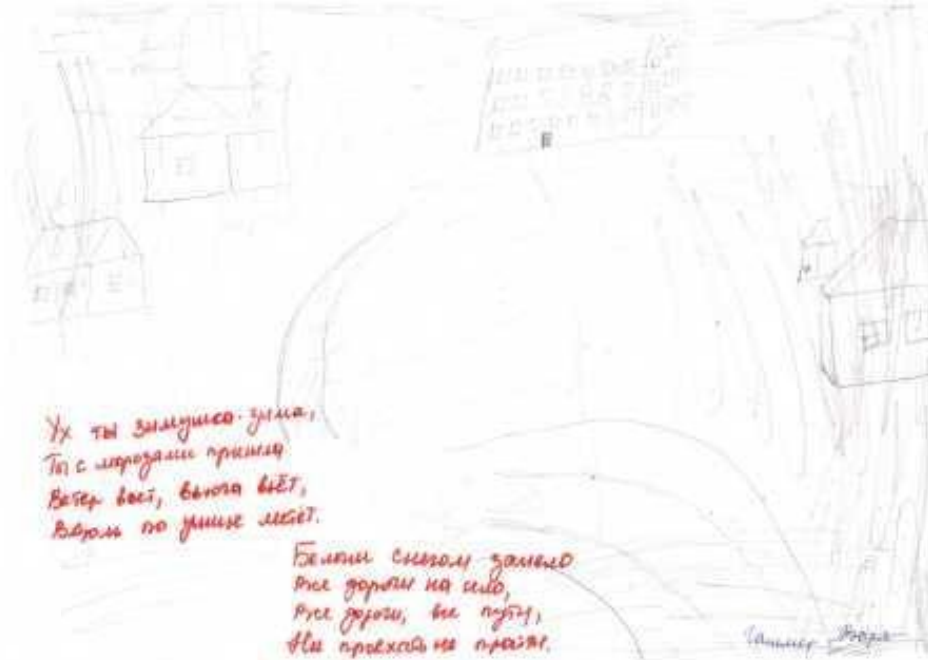 Ух ты зимушка-зима,
Ты с морозами пришла
Ветер воет, вьюга вьёт,
Вдоль по улице метёт.
Белым снегом замело
Все дороги на село,
Все дороги, все пути,
Ни проехать не пройти.
Варя